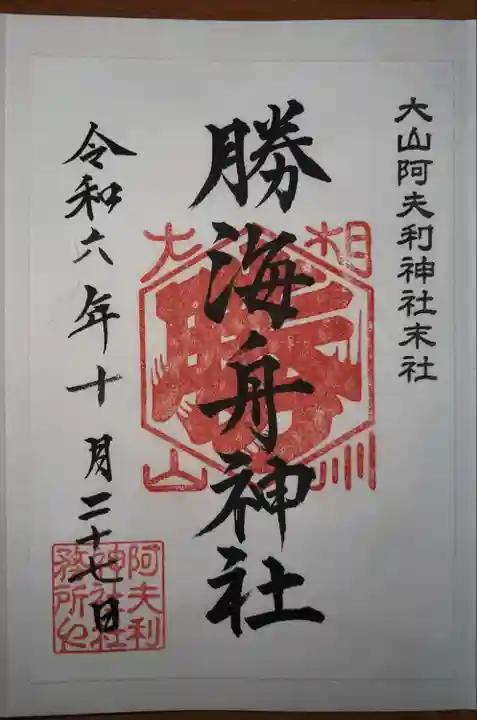 大山阿夫利神社末社
勝海舟神社
令和六年十月二十七日
相州
大山
勝
阿夫利
神社社
務所之印